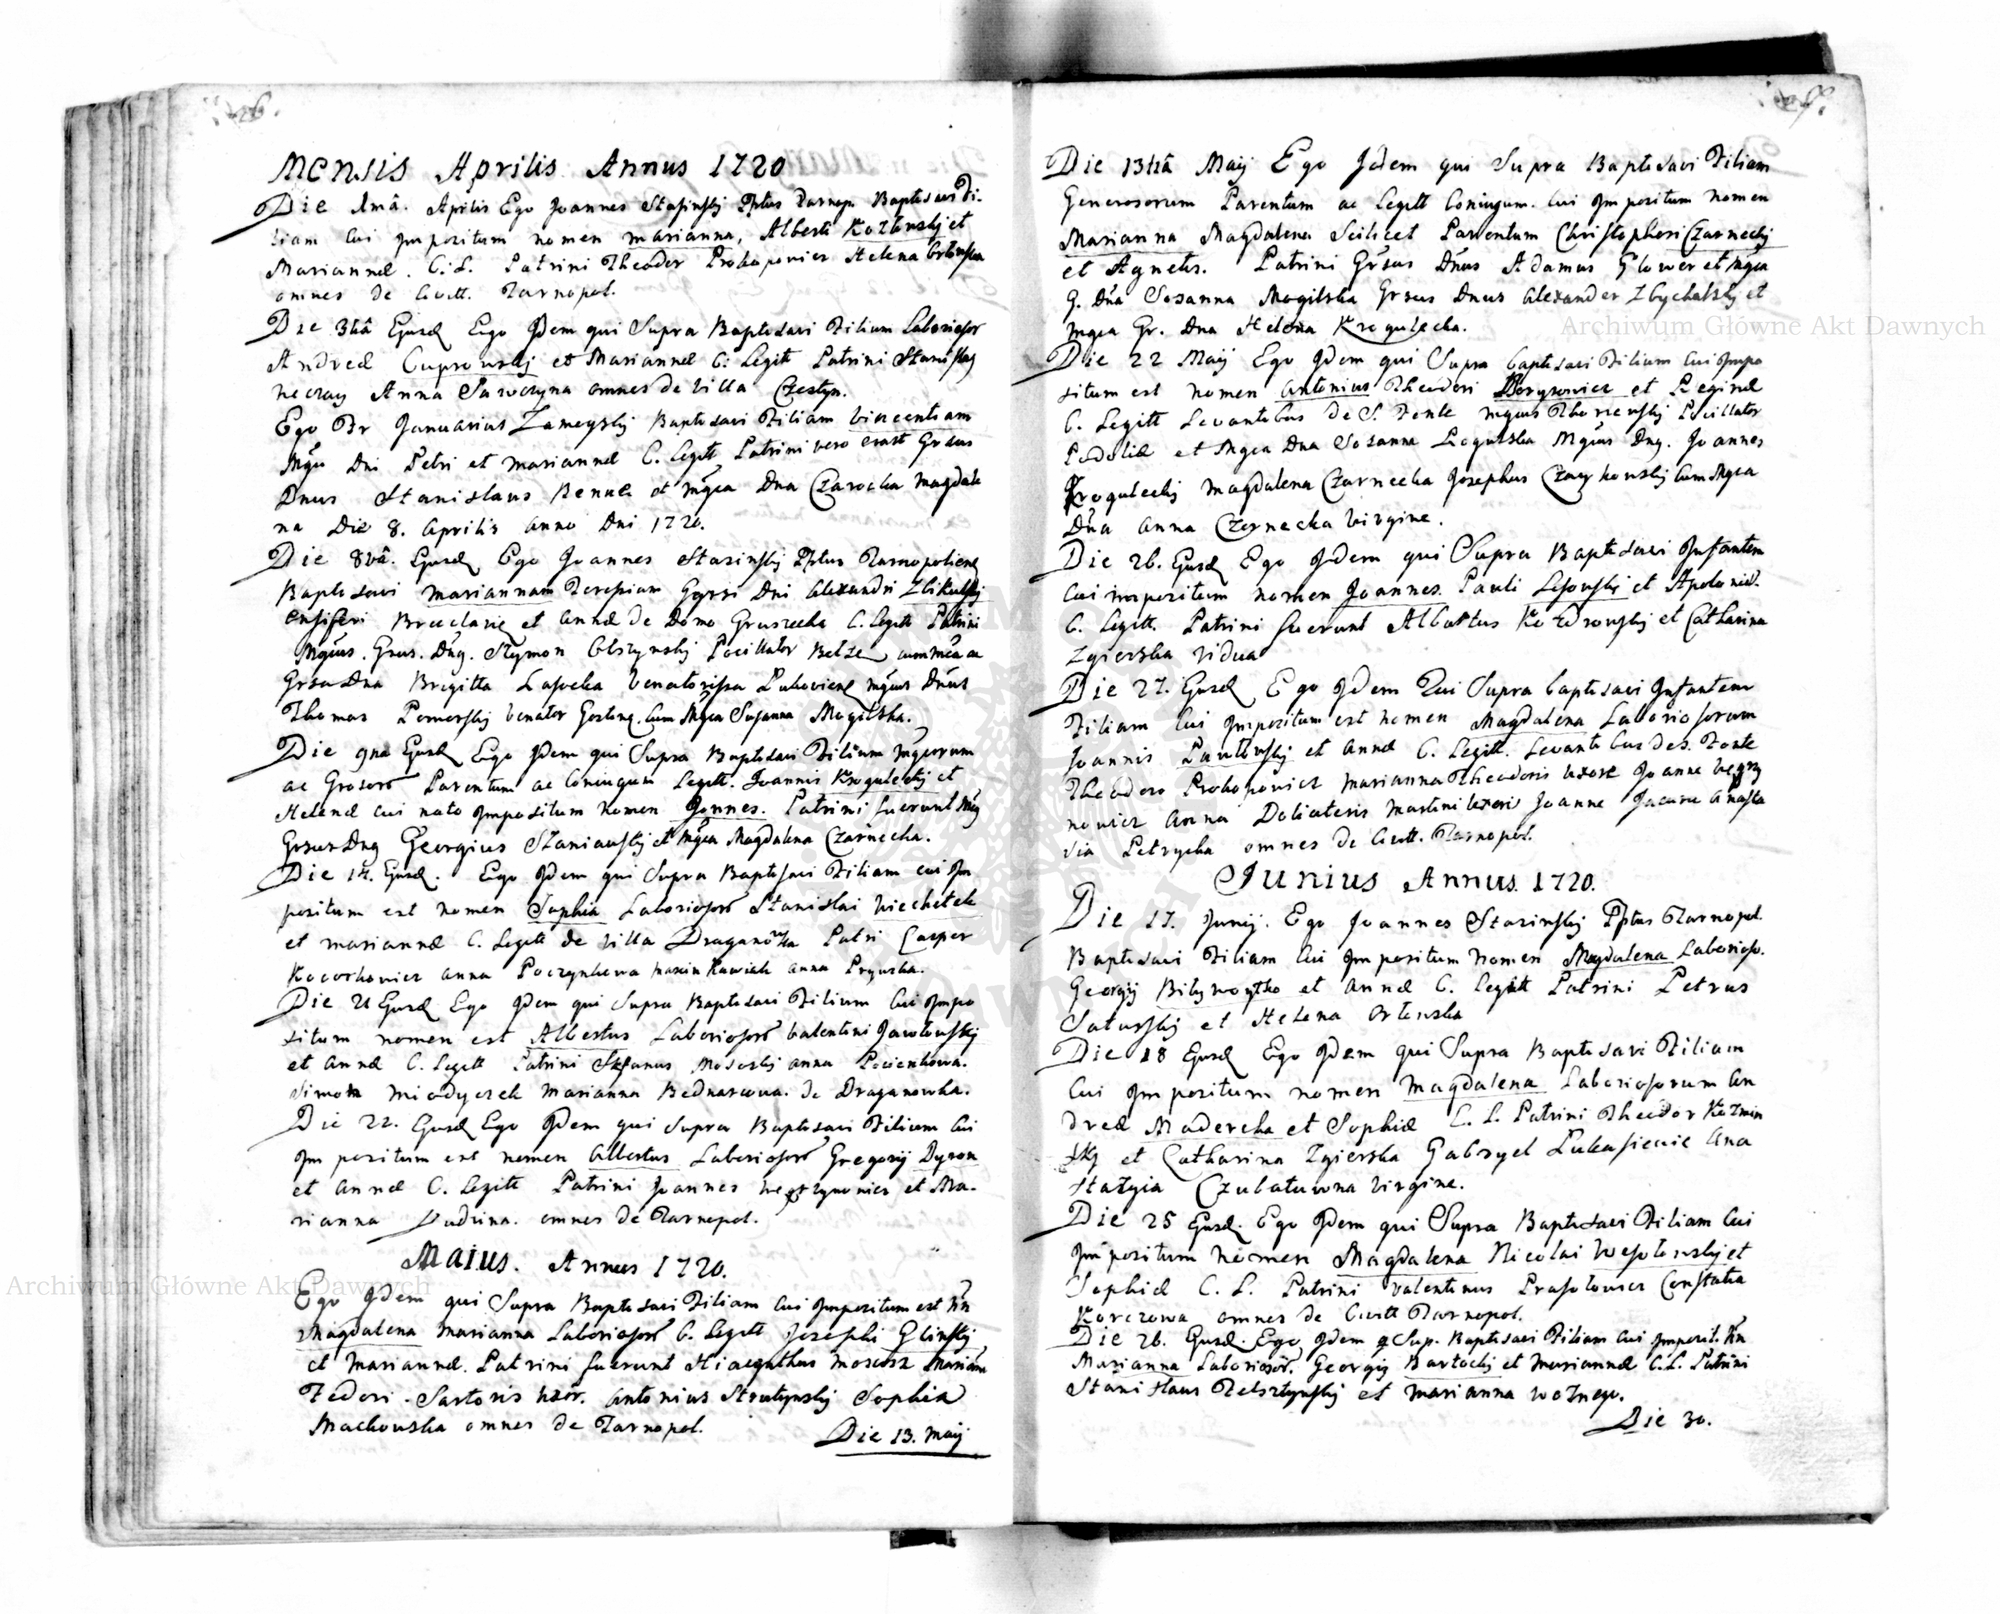 26.
Mensis Aprilis Annus 1720
Die 1mâ. Aprilis Ego Joannes Stasinskj Pptus Tarnop. Baptisavi Fi-
liam Cui Impozitum nomen Marianna, Alberti Kozlowskj et
Mariannæ. C. L. Patrini Theodor Prokopowicz Helena Orlowska
omnes de Civitt. Tarnopol.
Die 3tiâ Ejusd Ego Idem qui Supra Baptisavi Filium Laboriosor
Andreæ Cuprowskj et Mariannæ C: Legitt Patrini Stanislag
Anna omnes de Villa
Ego Fr Januarius Zameyskj Baptisavi Filiam Vincentiam
Mgci Dni Petri et Mariannæ C. Legitt Patrini vero erant Grsus
Dnus Stanislaus et Mgca Dna Czarocka Magdale
na Die 8. Aprilis Anno Dni 1720.
Die 8vâ. Ejusd Ego Joannes Stasinskj Pptus Tarnopoliens
Baptisavi Mariannam Teresiam Grsi Dni Alexandri Zbikalskj
Ensiferi Braclavie et Annæ de Domo Gruszecka C. Legitt Patrini
Mgcus. Grsus. Dng. Szymon Olszynskj Pocillator Belze cum Mca ac
Grsa Dna Brigitta Lasocka Venatorissa Mgcus Dnus
Thomas Venator Gostyng. Cum Mgca Susanna Mogilska.
Die 9na Ejusd Ego Idem qui Supra Baptisavi Filium Mgcorum
ac Grosorũ Parentum ac Coniugum Legitt. Joannis Kroguleckj et
Helenæ cui nato Impositum Nomen Joannes. Patrini fuerunt Mg
Grsus Dng Georgius Staniawskj et Mgca Magdalena Czarnecka.
Die 14. Ejusd. Ego Idem qui Supra Baptisavi Filiam cui Im
pozitum est nomen Sophia Laboriosorũ Stanislai Wiechetek
et Mariannæ C. Legitt de Villa Draganowka Patri Casper
Kocorkowicz Anna Poczynkowa Maxim Kawiak Anna Pryuska.
Die 21 Ejusd Ego Idem qui Supra Baptisavi Filium Cui Impo
situm nomen est Albertus Laboriosorũ Valentini Jawlowskj
et Annæ C. Legitt Patrini Stefanus Moseskj Anna Pocienkowa.
Simon Miodyczek Marianna Bednarowa. de Draganowka.
Die 22. Ejusd Ego Idem qui Supra Baptisavi Filium Cui
Im pozitum est nomen Albertus Laboriosorũ Gregorij Dyron
et Annæ C. Legitt Patrini Joannes et Ma-
rianna Dudzina. omnes de Tarnopol.
Maius. Annus 1720.
Ego Idem qui Supra Baptisavi Filiam Cui Impozitum est Nn
Magdalena Marianna Laboriosorũ C. Legitt Jozephi Glinskj
et Mariannæ. Patrini fuerunt Hiacynthus Moscisz Marian
Fedori. Sartoris uxor. Antonius Stratynskj Sophia
Machowska omnes de Tarnopol.
Die 13. Maij
Die 13tiâ Maij Ego Idem qui Supra Baptisavi Filiam
Generosorum Parentum ac Legitt Coniugum. Cui Im pozitum nomen
Marianna Magdalena Scilicet Parentum Christopheri Czarneckj
et Agnetis. Patrini Grsus Dnus Adamus Glower et Mgca
G. Dna Sosanna Mogilska Grsus Dnus Alexander Zbychalskj et
Mgca Gr. Dna Helena Krogulecka.
Die 22 Maij Ego Idem qui Supra baptisavi Filium Cui Impo
situm est nomen Antonius Theodori Borysowicz et Reginæ
C. Legitt Levantibus de S. Fonte Mgcus Pocillator
Podoliæ et Mgca Dna Sosanna Mgcus Dng. Joannes
Kroguleckj Magdalena Czarnecka Josephus Czaykowskj Cum Mgca
Dna Anna Czernecka Virgine.
Die 26. Ejusd Ego Idem qui Supra Baptisavi Infantem
Cui imporitum nomen Joannes. Pauli Lisowskj et Apoloniæ.
C. Legitt. Patrini fuerunt Albertus Kozdrowskj et Catharina
Zgierska Vidua
Die 27. Ejusd Ego Idem Qui Supra baptisavi Infantem
Filiam Cui Impozitum est nomen Magdalena Laboriosorum
Joannis Pawlowskj et Annæ C. Legitt. Levantibus de S. Fonte
Theodoro Prokopowicz Marianna Theodoris Uxore Joanne Wegrzy
nowicz Anna Doliatoris Martini Uxori Joanne Anasta
sia Petrycka omnes de Civitt. Tarnopol.
Junius Annus. 1720.
Die 17. Junij. Ego Joannes Stasinskj Pptus Tarnopol.
Baptisavi Filiam Cui Im pozitum Nomen Magdalena Laborioso.
Georgij Bilywoytko et Annæ C. Legitt Patrini Petrus
Saturskj et Helena Orlewska
Die 18 Ejusd Ego Idem qui Supra Baptisavi Filiam
Cui Im pozitum nomen Magdalena Laboriosorum An
dreæ Maderska et Sophiæ C. L. Patrini Theodor Kozmin
skj et Catharina Zgierska Gabryel Lukasiewic Ana
stazyia Czubatuwna Virgine.
Die 25 Ejusd. Ego Idem qui Supra Baptisavi Filiam Cui
Impozitum Nomen Magdalena Nicolai Wesolowskj et
Sophiæ C. L. Patrini Valentinus Prasolowicz Constatia
Korczowa omnes de Civitt Tarnopol.
Die 26. Ejusd. Ego Idem q Sup. Baptisavi Filiam Cui Impozit. Nn
Marianna Laboriosorũ. Georgij Bartockj et Mariannæ C. L. Patrini
Stanislaus Telsztynskj et Marianna Woznego.
Die 30.
Archiwum Główne Akt Dawnych
Archiwum Główne Akt Dawnych